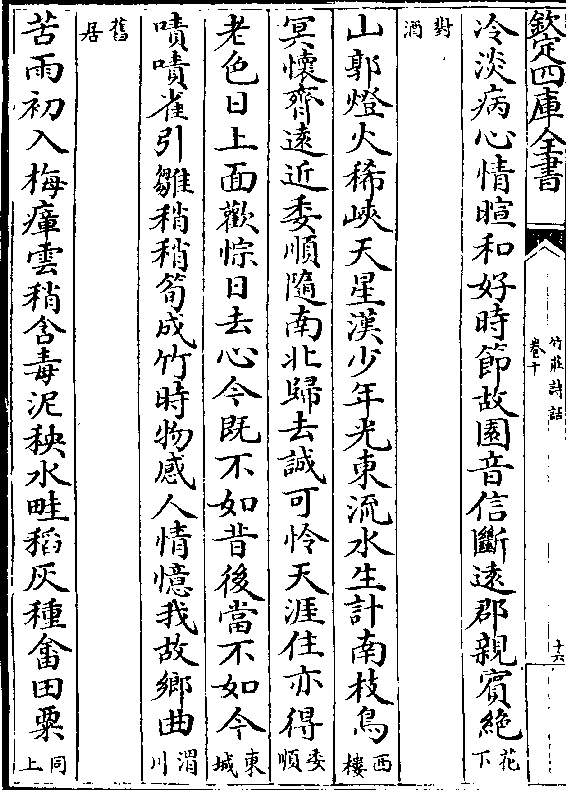 欽定四庫全書
竹莊詩話
卷十
十六
冷淡病心情暄和好時節故園音信斷遠郡親賓絶花下
對酒
山郭燈火稀峽天星漢少年光東流水生計南枝鳥西樓
冥懷齊遠近委順隨南北歸去誠可怜天涯住亦得委順
老色日上面歡悰日去心今既不如昔後當不如今東城
嘖嘖雀引雛稍稍筍成竹時物感人情憶我故鄉曲渭川
舊居
苦雨初入梅瘴雲稍含毒泥秧水畦稻灰種畬田粟同上